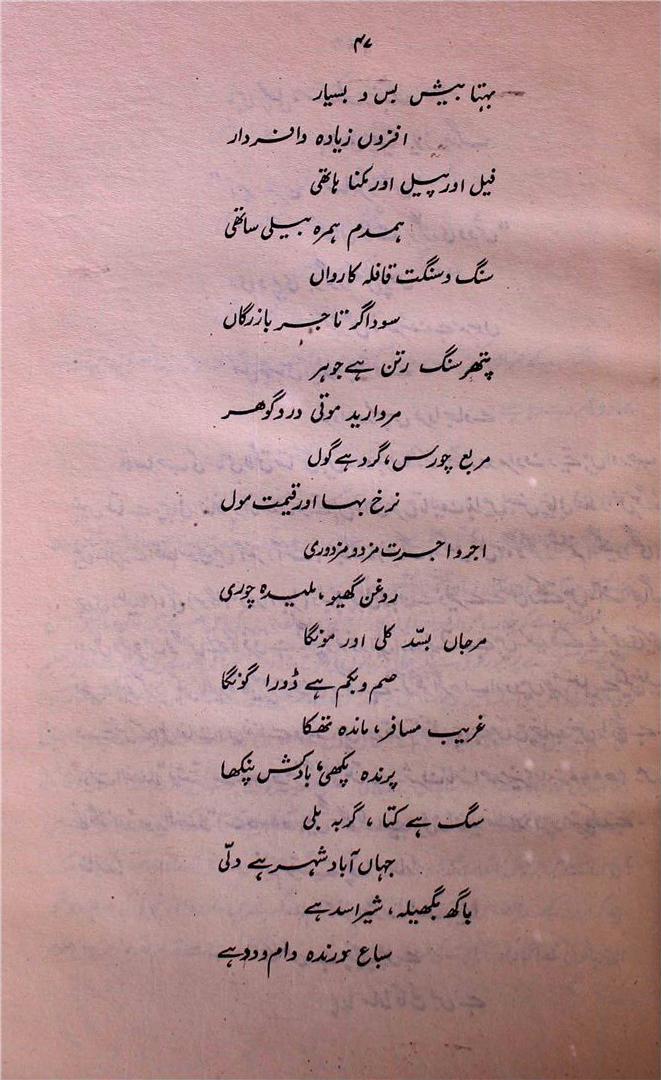 ۴۷
بہتا بیش بس و بسیار
افزوں زیادہ وافردار
فیل اور پیل اور مکنا ہاتھی
ہمدم ہمرہ بیلی ساتھی
سنگ و سنگت قافلہ کارواں
سوداگر تاجر بازرگاں
پتھر سنگ رتن ہے جوہر
مروارید موتی در و گوھر
مربع چورس، گرد ہے گول
نرخ بہا اور قیمت مول
اجر و اجرت مزد و مزدوری
روغن گھیو، ملیدہ چوری
مرجاں بسّد کلی اور مونگا
صم و بکم ہے ڈورا گونگا
غریب مسافر، ماندہ تھکا
پرندہ پکھی، بادکش پنکھا
سگ ہے کتا، گربہ بلی
جہاں آباد شہر ہے دلّی
باگھ بگھیلہ، شیر اسد ہے
سباع درندہ دام و دد ہے